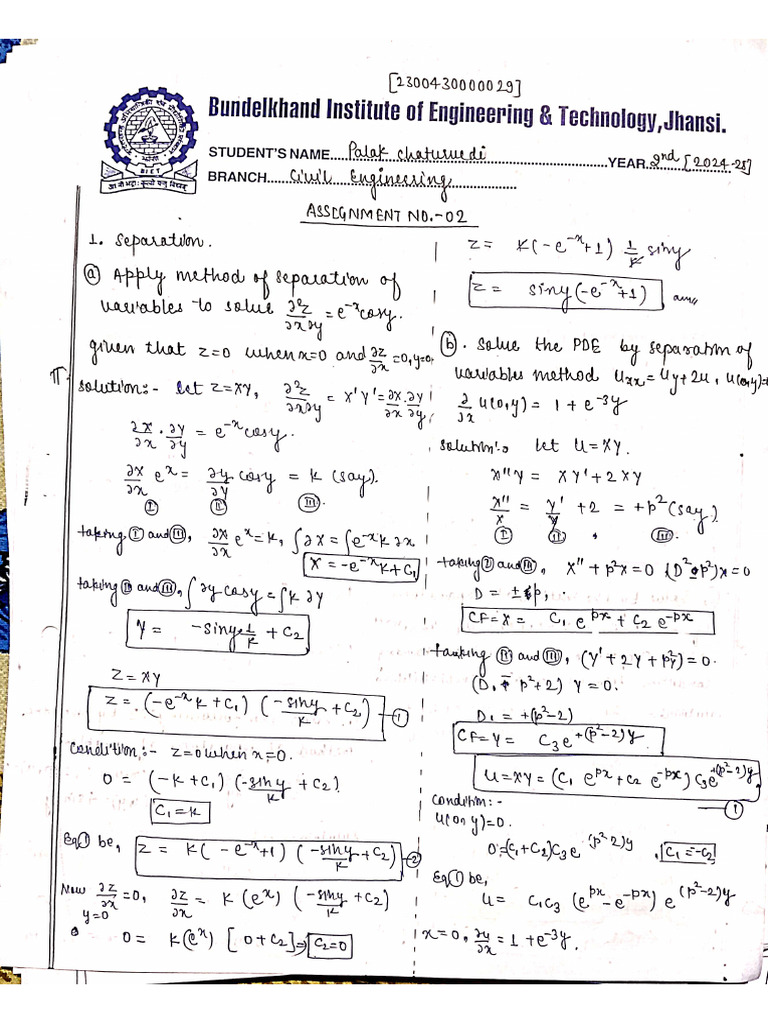 [2300430000029]
Bundelkhand Institute of Engineering & Technology, Jhansi.
STUDENT'S NAME Palak Chaturvedi YEAR 2nd [2024-25]
BRANCH Civil Engineering
BIET
ASSIGNMENT NO.-02
1. Separation.
(a) Apply method of separation of
variables to solve ∂²z/∂x∂y = e^-x cosy.
given that z=0 when x=0 and ∂z/∂x=0, y=0
solution:- let Z=XY, ∂²z/∂x∂y = X'Y' = ∂X/∂x ∂y/∂y
∂X/∂x · ∂y/∂y = e^-x cosy.
∂X/∂x e^x = ∂y/∂y cosy = k (say).
(I) (II) (III)
taking (I) and (III), ∂X/∂x e^x = k, ∫∂X = ∫e^-x k ∂x
X = -e^-x k + C₁
taking (II) and (III), ∫∂y cosy = ∫k ∂y
Y = -siny 1/k + C₂
Z = XY
Z = (-e^-x k + C₁) (-siny/k + C₂) —(1)
Condition:- Z=0 when x=0.
0 = (-k + C₁) (-siny/k + C₂)
C₁ = k
Eq(1) be, Z = k(-e^-x+1) (-siny/k + C₂) —(2)
Now ∂z/∂x = 0, ∂z/∂x = k(e^x) (-siny/k + C₂)
y=0
0 = k(e^x) [0+C₂] ⇒ C₂=0
z = k(-e^-x+1) 1/k siny
z = siny(-e^-x+1) ans
(b). Solve the PDE by separation of
variables method Uxx = Uy + 2u, u(0,y)=
∂/∂x u(0,y) = 1 + e^-3y
solution:- let U = XY.
X"Y = XY' + 2XY
X"/X = Y'/Y + 2 = +p² (say)
(I) (II) (III)
taking (I) and (III), X" + p²x = 0 (D² - p²)x = 0
D = ±p,
CF = X = C₁ e^px + C₂ e^-px
taking (II) and (III), (Y' + 2Y + p²Y) = 0.
(D₁ - p²+2) Y = 0.
D₁ = +(p²-2)
CF = Y = C₃e^+(p²-2)y
U = XY = (C₁ e^px + C₂ e^-px) C₃e^+(p²-2)y
—(1)
Condition:-
u(0,y)=0.
0 = (C₁+C₂)C₃e^(p²-2)y, C₁ = -C₂
Eq(1) be,
u = C₁C₃ (e^px - e^-px) e^(p²-2)y
x=0, ∂y/∂x = 1 + e^-3y.